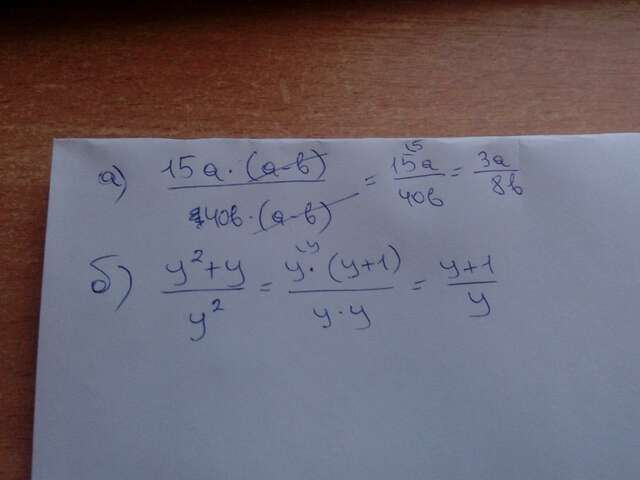 а) 15a·(a-b)/40b·(a-b) = 15a/40b = 3a/8b
б) y²+y/y² = y·(y+1)/y·y = y+1/y